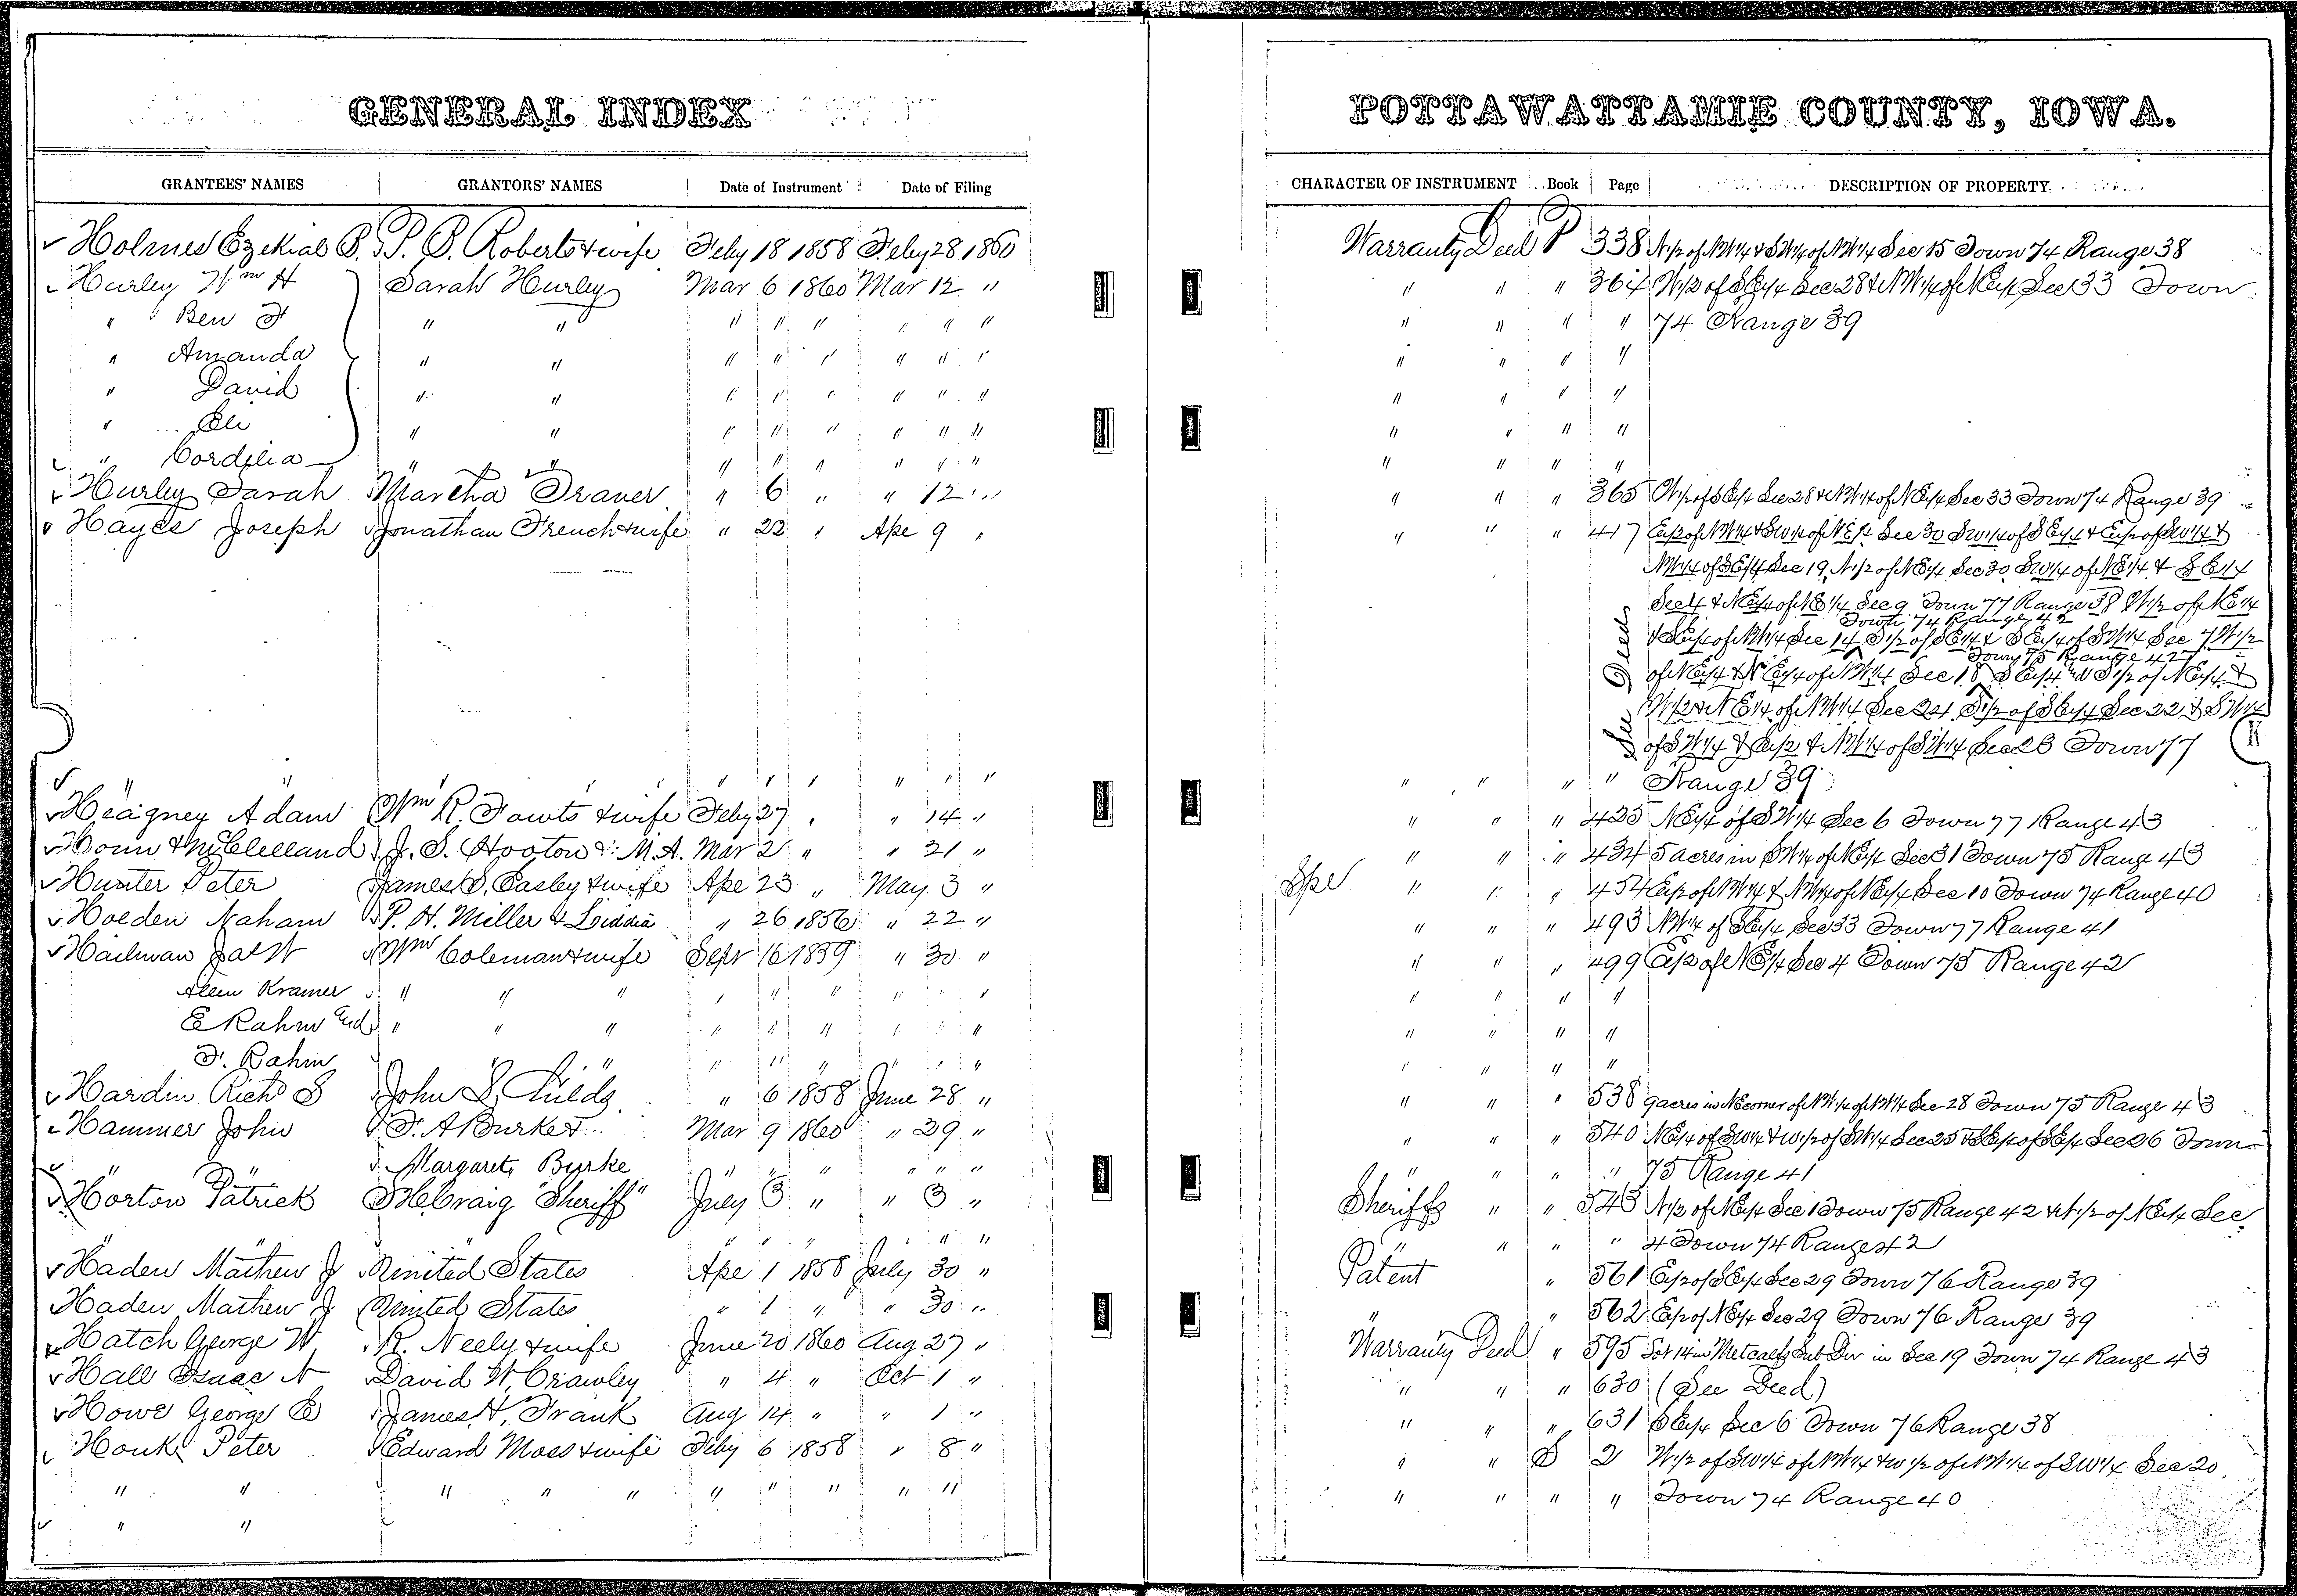 GENERAL INDEX
POTTAWATTAMIE COUNTY, IOWA.
GRANTEES' NAMES GRANTORS' NAMES Date of Instrument Date of Filing CHARACTER OF INSTRUMENT Book Page DESCRIPTION OF PROPERTY
Holmes Ezekial P. P. Roberts & wife Feby 18 1858 Feby 28 1860 Warranty Deed P 338 N1/2 of NW1/4 & SW1/4 of NW1/4 Sec 15 Town 74 Range 38
Hurley Wm H Sarah Hurley Mar 6 1860 Mar 12 " " " " 364 W1/2 of SE1/4 Sec 28 & NW1/4 of NE1/4 Sec 33 Town
" Ben F " " " " " " " " " " " " 74 Range 39
" Amanda " " " " " " " " " " " "
" David " " " " " " " " " " " "
" Eli " " " " " " " " " " " "
" Cordelia " " " " " " " " " " " "
Hurley Sarah Martha Traver " 6 " " 12 " " " " 365 W1/2 of SE1/4 Sec 28 & NW1/4 of NE1/4 Sec 33 Town 74 Range 39
Hayes Joseph Jonathan French & wife " 22 " Ape 9 " " " " 417 E1/2 of NW1/4 & SW1/4 of NE1/4 Sec 30 SW1/4 of SE1/4 & E1/2 of SW1/4 &
NW1/4 of SE1/4 Sec 19, N1/2 of NE1/4 Sec 30 SW1/4 of NE1/4 & SE1/4
Sec 4 & NE1/4 of NE1/4 Sec 9 Town 77 Range 38 W1/2 of NE1/4
Town 74 Range 42
& SE1/4 of NW1/4 Sec 14 S1/2 of SE1/4 & SE1/4 of SW1/4 Sec 7 W1/2
Town 75 Range 42
of NE1/4 & NE1/4 of NW1/4 Sec 18 SE1/4 & S1/2 of NE1/4 &
W1/2 & NE1/4 of NW1/4 Sec 24 S1/2 of SE1/4 Sec 22 & SW1/4
of SW1/4 & E1/2 & NW1/4 of SW1/4 Sec 23 Town 77
See Deeds
" " " " " " " " " " " " Range 39
Heagney Adam Wm R. Fouts & wife Feby 27 " " 14 " " " " 425 NE1/4 of SW1/4 Sec 6 Town 77 Range 43
Honn & McClelland J. S. Hooton & M. A. Mar 2 " " 21 " " " " 434 5 acres in SW1/4 of NE1/4 Sec 31 Town 75 Range 43
Hunter Peter James S. Easley & wife Ape 23 " May 3 " Spe " " " 454 E1/2 of NW1/4 & NW1/4 of NE1/4 Sec 10 Town 74 Range 40
Holden Naham P. H. Miller & Liddia " 26 1856 " 22 " " " " 493 NW1/4 of SE1/4 Sec 33 Town 77 Range 41
Hailman Jas W Wm Coleman & wife Sept 16 1859 " 30 " " " " 499 E1/2 of NE1/4 Sec 4 Town 75 Range 42
Alein Kramer " " " " " " " " " " " " "
E Rahm " " " " " " " " " " " " "
F. Rahm " " " " " " " " " " " "
Hardin Rich S John S. Childs " 6 1858 June 28 " " " " 538 9 acres in NE corner of NW1/4 of NW1/4 Sec 28 Town 75 Range 43
Hammer John F. A Burket Mar 9 1860 " 29 " " " " 540 NE1/4 of SW1/4 & W1/2 of SW1/4 Sec 25 & SE1/4 of SE1/4 Sec 26 Town
" " Margaret Burke " " " " " " " " " " 75 Range 41
Horton Patrick H Craig "Sheriff" July 3 " " 3 " Sheriffs " " 543 N1/2 of NE1/4 Sec 1 Town 75 Range 42 & N1/2 of NE1/4 Sec
" " " " " " " " " " " 4 Town 74 Range 42
Haden Mathew J United States Ape 1 1858 July 30 " Patent " 561 E1/2 of SE1/4 Sec 29 Town 76 Range 39
Haden Mathew J United States " 1 " " 30 " " " 562 E1/2 of NE1/4 Sec 29 Town 76 Range 39
Hatch George W R. Neely & wife June 20 1860 Aug 27 " Warranty Deed " 595 Lot 14 in Metcalfs Sub Div in Sec 19 Town 74 Range 43
Hall Isaac N David W. Crawley " 4 " Oct 1 " " " " 630 (See Deed)
Howe George E James H. Frank Aug 14 " " 1 " " " " 631 SE1/4 Sec 6 Town 76 Range 38
Houk Peter Edward Moss & wife Feby 6 1858 " 8 " " " S 2 W1/2 of SW1/4 of NW1/4 & W1/2 of NW1/4 of SW1/4 Sec 20
" " " " " " " " " " " " " " Town 74 Range 40
" "